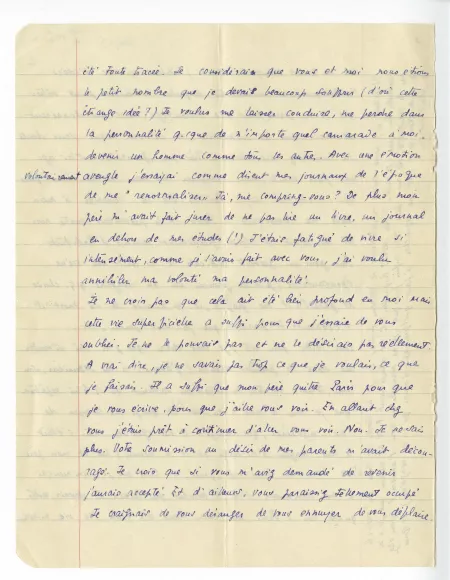 été toute tracée. Je considérais que vous et moi nous étions
le petit nombre que je devais beaucoup souffrir (d'où cette
étrange idée ?) Je voulus me laisser conduire, me perdre dans
la personnalité q.cque de n'importe quel camarade à moi.
devenir un homme comme tous les autres. Avec une émotion
volontairement aveugle j'essayai comme disent mes journaux de l'époque
de me "renormaliser" Toi, me comprenez-vous ? De plus mon
père m'avait fait jurer de ne pas lire un livre, un journal
en dehors de mes études (!) J'étais fatigué de vivre si
intensément, comme je l'avais fait avec vous, j'ai voulu
annihiler ma volonté ma personnalité.
Je ne crois pas que cela ait été bien profond en moi mais
cette vie superficielle a suffi pour que j'essaie de vous
oublier. Je ne le pouvais pas et ne le désirais pas réellement
A vrai dire, je ne savais pas trop ce que je voulais, ce que
je faisais. Il a suffi que mon père quitte Paris pour que
je vous écrive, pour que j'aille vous voir. En allant chez
vous j'étais prêt à continuer d'aller vous voir. Non. Je ne sais
plus. Votre soumission au désir de mes parents m'avait décou-
ragé. Je crois que si vous m'aviez demandé de revenir
j'aurais accepté. Et d'ailleurs, vous paraissiez tellement occupé
Je craignais de vous déranger de vous ennuyer de vous déplaire